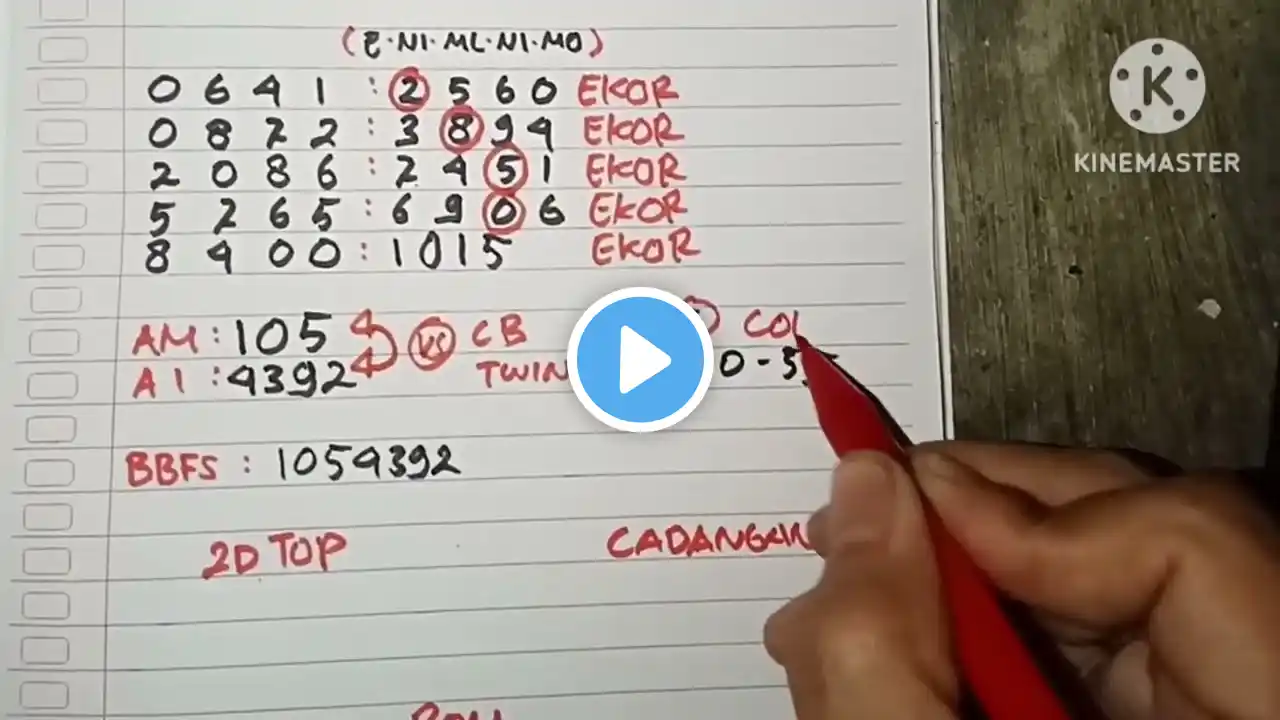 (E·NI·ML·NI·MO)
0 6 4 1 : 2 5 6 0 EKOR
0 8 7 2 : 3 8 9 4 EKOR
2 0 8 6 : 7 4 5 1 EKOR
5 7 6 5 : 6 9 0 6 EKOR
8 4 0 0 : 1 0 1 5 EKOR
KINEMASTER
AM : 105 VS CB
AI : 4392 TWIN
BBFS : 1054392
2D TOP CADANGAN